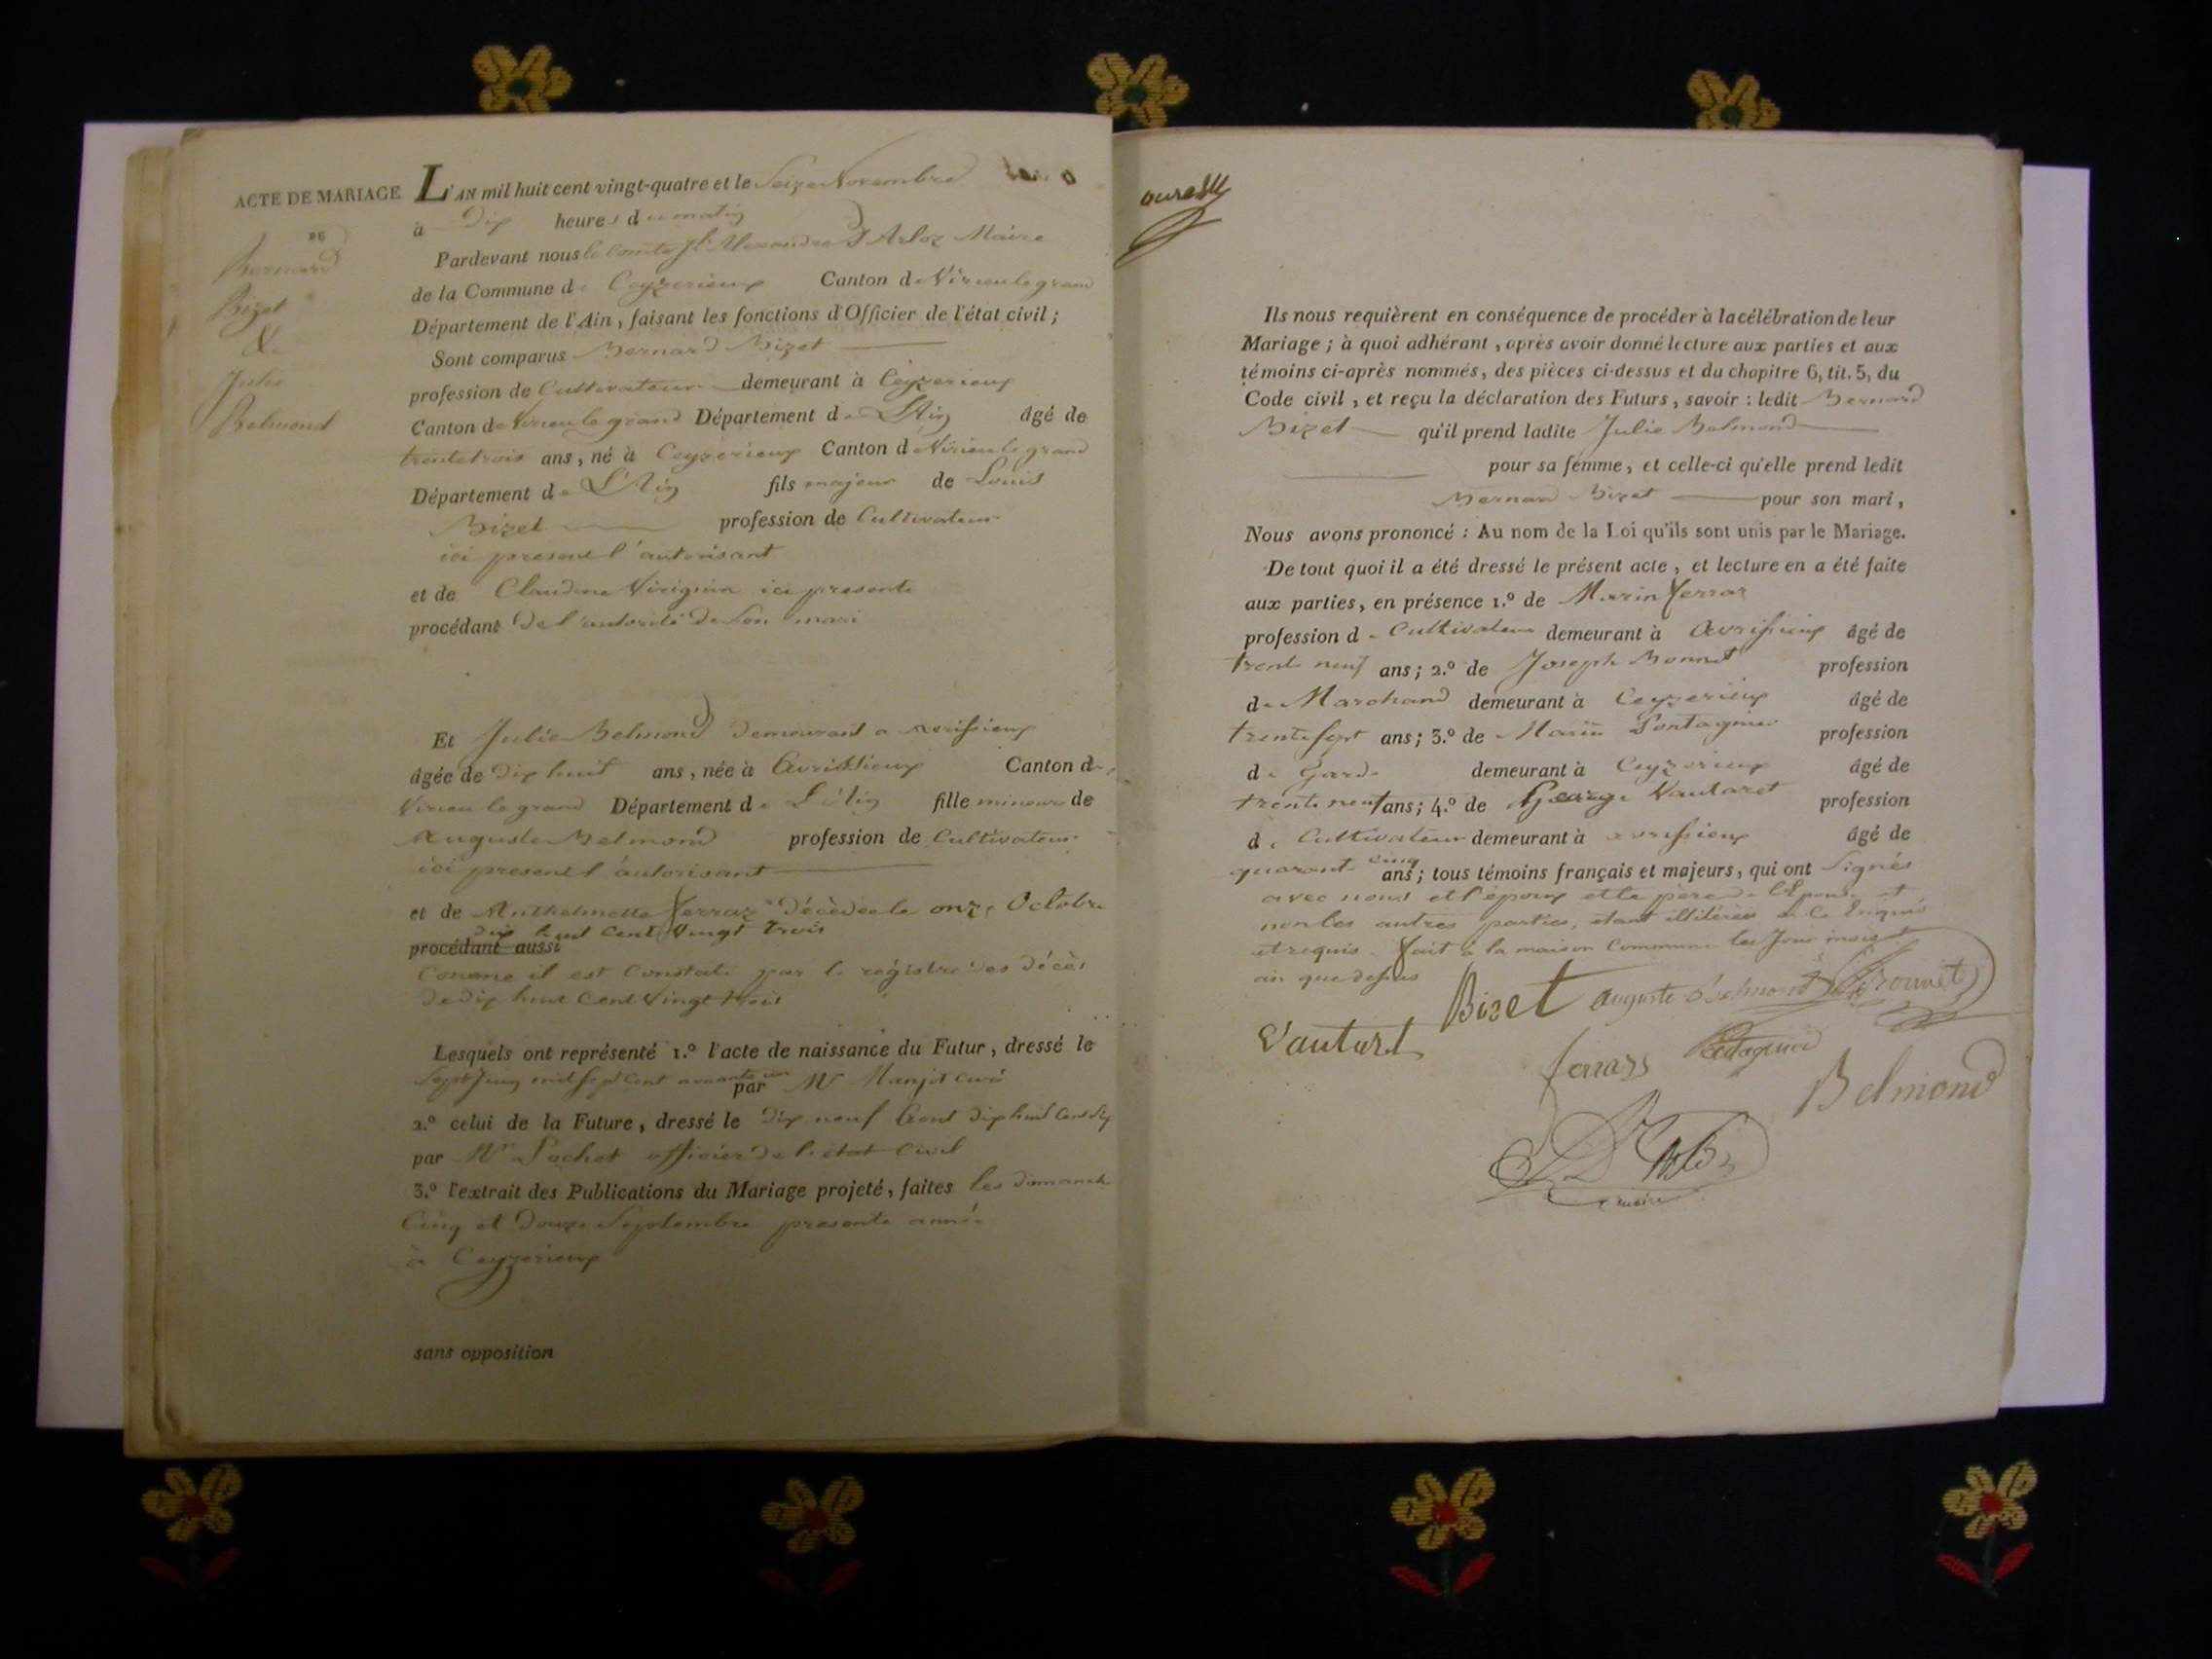 ACTE DE MARIAGE
Bernard
Bizet
&
Julie
Belmond
L'AN mil huit cent vingt-quatre et le Seize Novembre
à Dix heures du matin
Pardevant nous le Comte Alexandre D'Arloz Maire
de la Commune de Ceyzerieux Canton de Virieu le grand
Département de l'Ain, faisant les fonctions d'Officier de l'état civil ;
Sont comparus Bernard Bizet
profession de Cultivateur demeurant à Ceyzerieux
Canton de Virieu le grand Département de L'Ain âgé de
trente trois ans, né à Ceyzerieux Canton de Virieu le grand
Département de L'Ain fils majeur de Louis
Bizet profession de Cultivateur
ici present l'autorisant
et de Claudine ici presente
procédant de l'autorité de Son mari
Et Julie Belmond demeurant a avrissieux
âgée de dix huit ans, née à Avrissieux Canton de
Virieu le grand Département de L'Ain fille mineure de
Auguste Belmond profession de Cultivateur
ici present l'autorisant
et de Anthelmette ferraz Décèdée le onze Octobre
dix huit cent vingt trois
procédant aussi
Comme il est Constaté par le régistre des décès
de dix huit Cent Vingt trois
Lesquels ont représenté 1.º l'acte de naissance du Futur, dressé le
Sept Juin mil Sept Cent par Mr curé
2.º celui de la Future, dressé le dix neuf dix huit Cent Six
par Mr officier de l'état Civil
3.º l'extrait des Publications du Mariage projeté, faites les dimanche
Cinq et Douze Septembre presente année
à Ceyzerieux
sans opposition
Ils nous requièrent en conséquence de procéder à la célébration de leur
Mariage ; à quoi adhérant, après avoir donné lecture aux parties et aux
témoins ci-après nommés, des pièces ci-dessus et du chapitre 6, tit. 5, du
Code civil, et reçu la déclaration des Futurs, savoir : ledit Bernard
Bizet qu'il prend ladite Julie Belmond
pour sa femme, et celle-ci qu'elle prend ledit
Bernard Bizet pour son mari,
Nous avons prononcé : Au nom de la Loi qu'ils sont unis par le Mariage.
De tout quoi il a été dressé le présent acte, et lecture en a été faite
aux parties, en présence 1.º de Marin ferraz
profession de Cultivateur demeurant à Avrissieux âgé de
trente neuf ans ; 2.º de Joseph Bonnet profession
de Marchand demeurant à Ceyzerieux âgé de
trente sept ans ; 3.º de Marin Pontagnier profession
de Garde demeurant à Ceyzerieux âgé de
trente neuf ans ; 4.º de George Vautaret profession
de Cultivateur demeurant à avrissieux âgé de
quarante cinq ans ; tous témoins français et majeurs, qui ont Signés
avec nous et l'époux et le père de l'Epouse et
non les autres parties, étant illitérées de Ce Enquis
et requis. fait à la maison Commune les Jour mois et
an que dessus
Bizet auguste belmond
Vautart ferrass
Belmond
maire